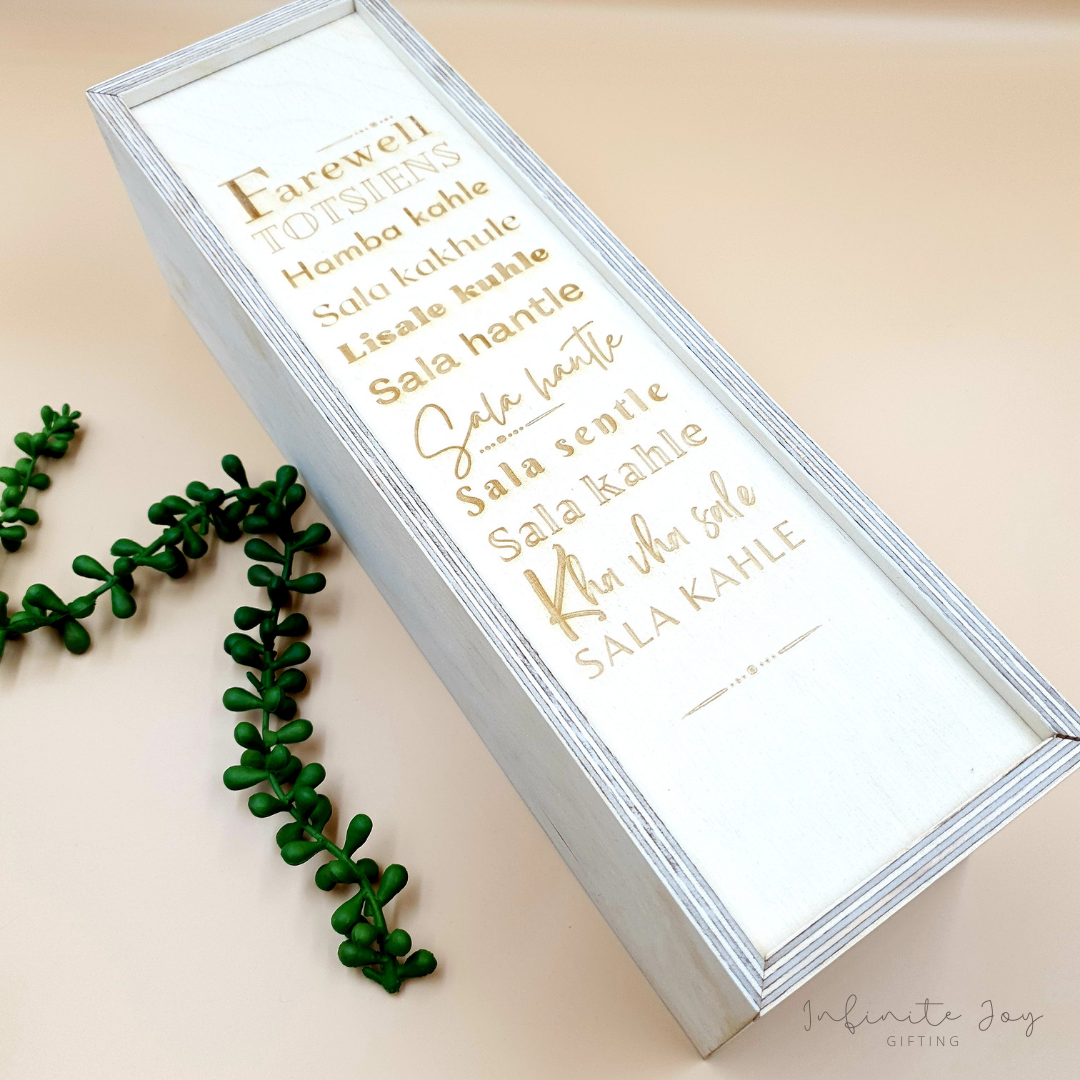 Farewell
TOTSIENS
Hamba kahle
Sala kakhule
Lisale kuhle
Sala hantle
Sala hantle
Sala sentle
Sala kahle
Kha vha sale
SALA KAHLE
Infinite Joy
GIFTING